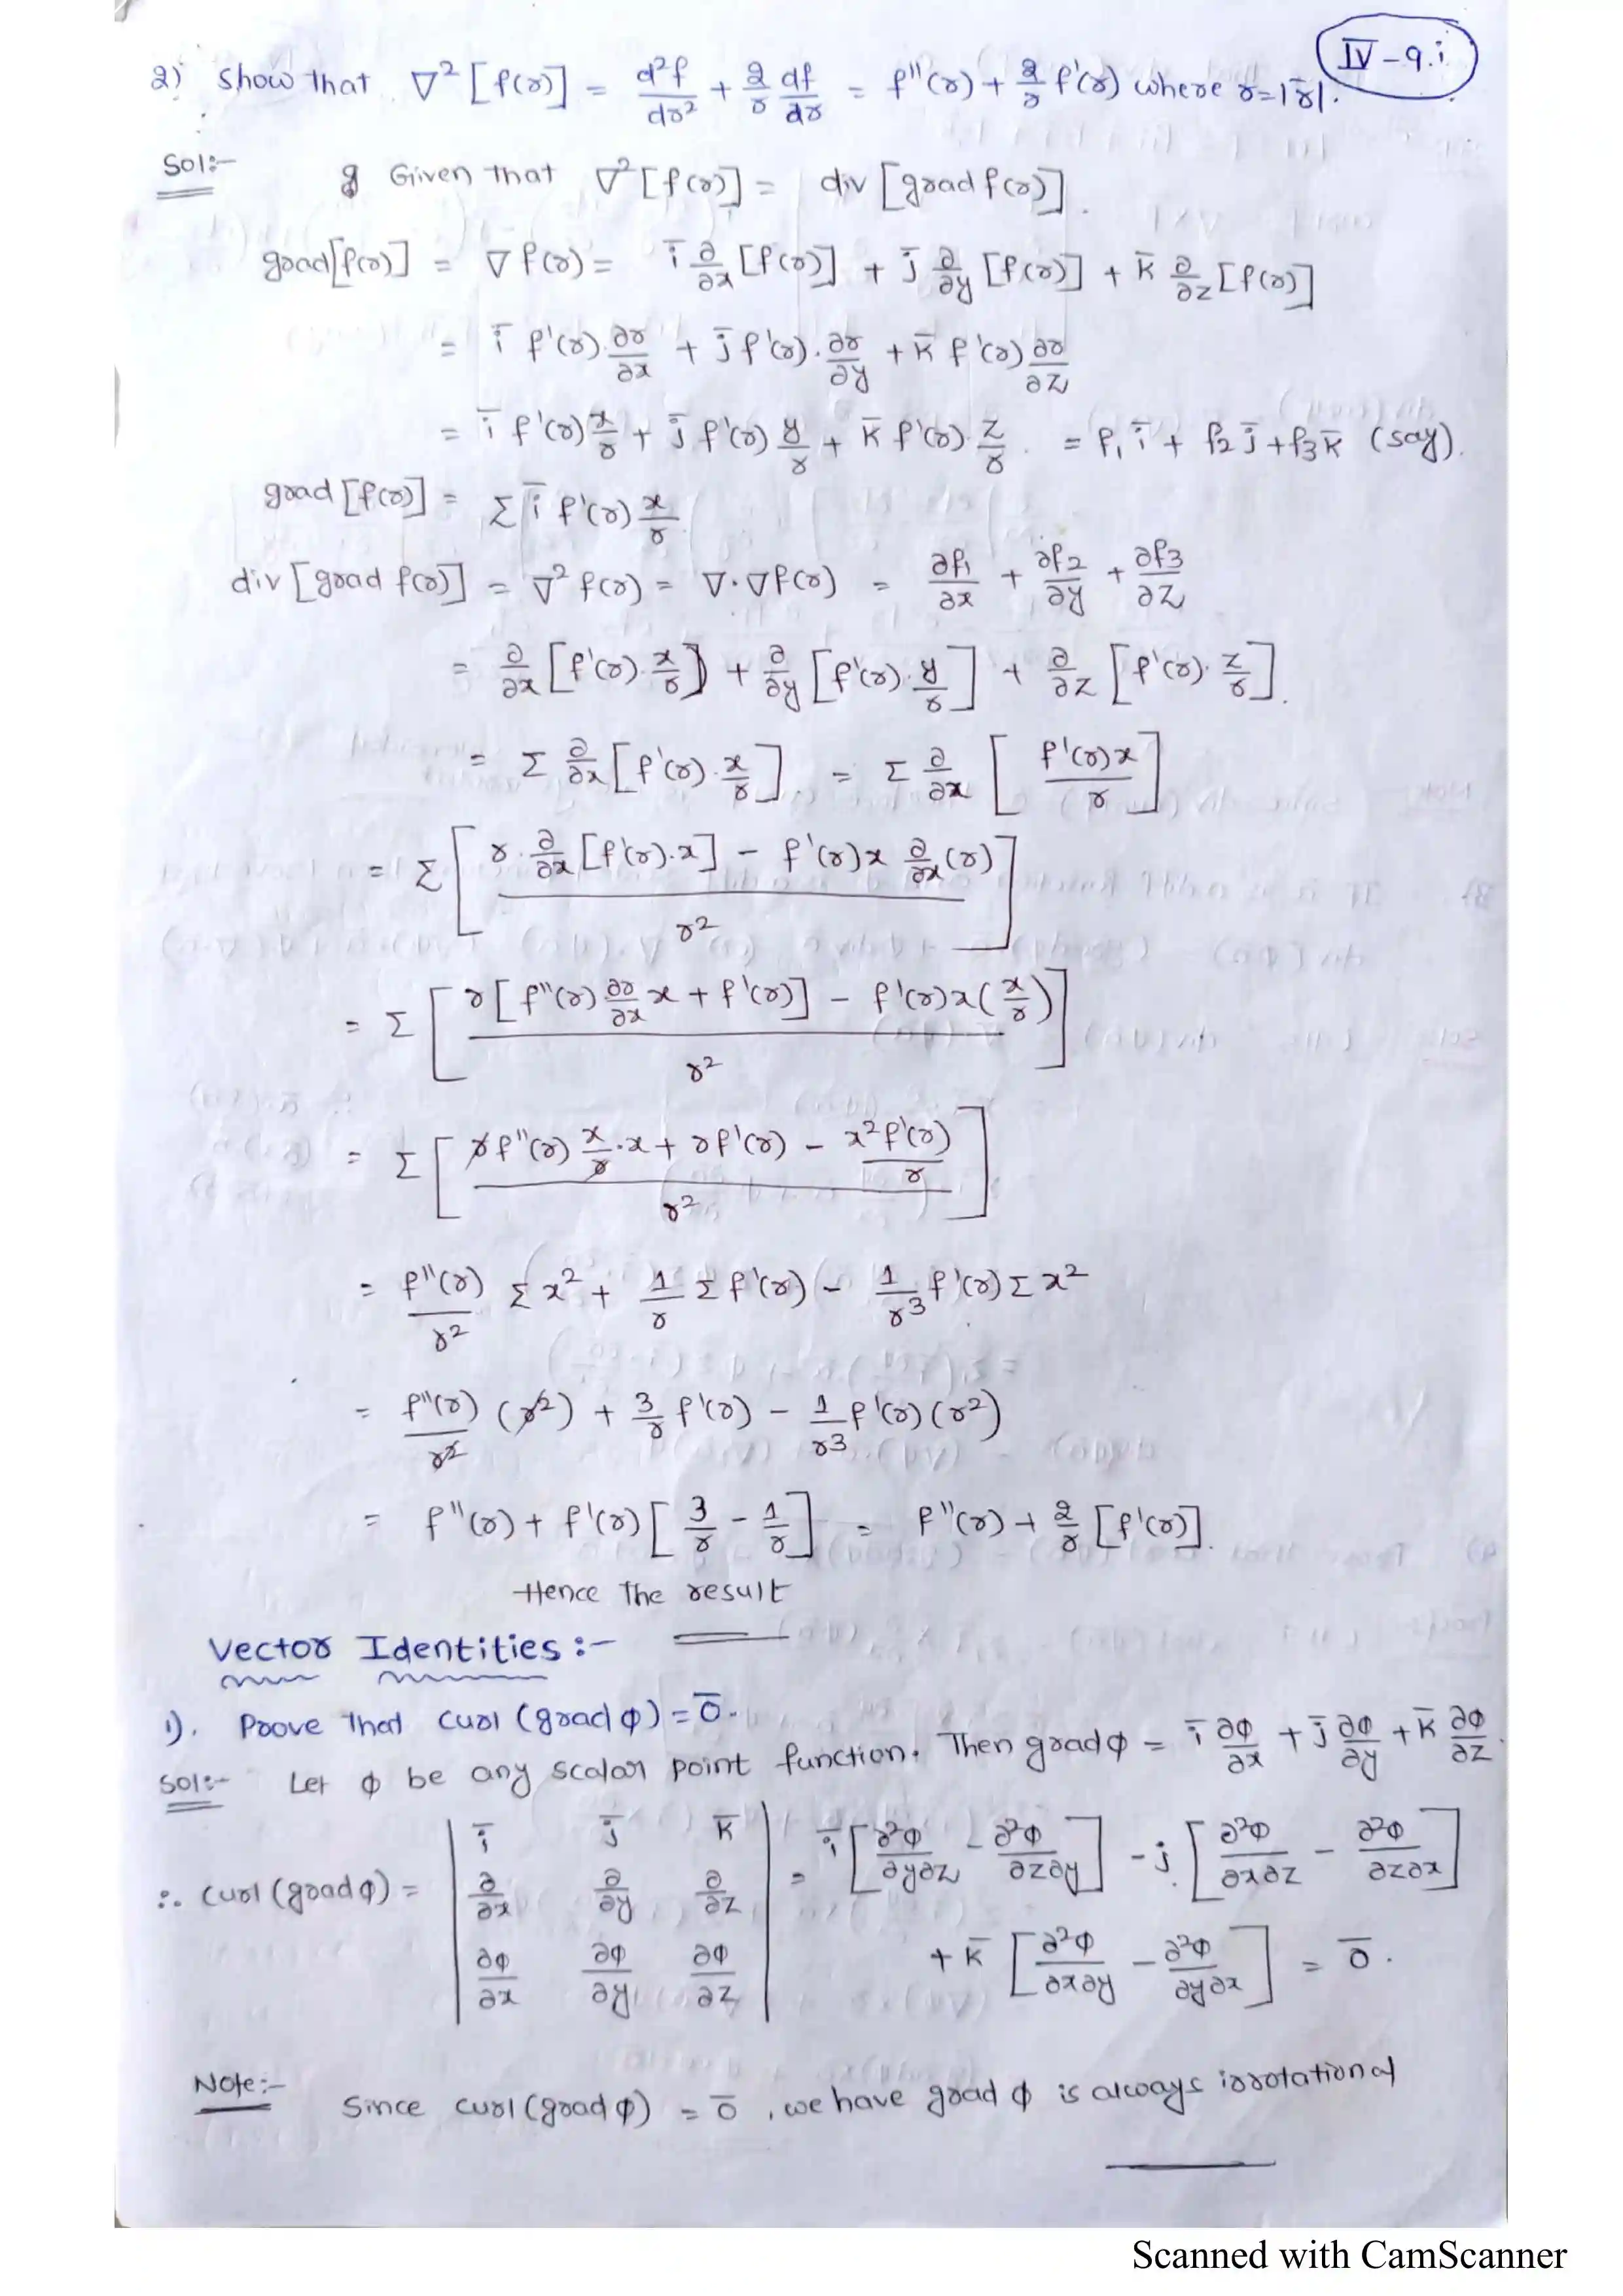 IV-9.i
2) Show that ∇²[f(r)] = d²f/dr² + 2/r df/dr = f''(r) + 2/r f'(r) where r=|r̄|.
Sol:- Given that ∇²[f(r)] = div [grad f(r)].
grad[f(r)] = ∇f(r) = ī ∂/∂x [f(r)] + j̄ ∂/∂y [f(r)] + k̄ ∂/∂z [f(r)]
= ī f'(r).∂r/∂x + j̄ f'(r).∂r/∂y + k̄ f'(r) ∂r/∂z
= ī f'(r) x/r + j̄ f'(r) y/r + k̄ f'(r). z/r . = f₁ ī + f₂ j̄ + f₃ k̄ (say).
grad [f(r)] = Σ ī f'(r) x/r.
div [grad f(r)] = ∇² f(r) = ∇.∇f(r) = ∂f₁/∂x + ∂f₂/∂y + ∂f₃/∂z
= ∂/∂x [f'(r). x/r] + ∂/∂y [f'(r). y/r] + ∂/∂z [f'(r). z/r].
= Σ ∂/∂x [f'(r). x/r]. = Σ ∂/∂x [f'(r)x / r]
= Σ [ (r. ∂/∂x [f'(r).x] - f'(r)x ∂/∂x (r)) / r² ]
= Σ [ (r [f''(r) ∂r/∂x x + f'(r)] - f'(r)x (x/r)) / r² ]
= Σ [ (r f''(r) x/r .x + r f'(r) - x² f'(r)/r) / r² ]
= f''(r)/r² Σ x² + 1/r Σ f'(r) - 1/r³ f'(r) Σ x²
= f''(r)/r² (r²) + 3/r f'(r) - 1/r³ f'(r) (r²)
= f''(r) + f'(r) [3/r - 1/r] = f''(r) + 2/r [f'(r)].
Hence The result
Vector Identities :-
1). Prove That curl (grad φ) = 0̄.
Sol:- Let φ be any scalar point function. Then grad φ = ī ∂φ/∂x + j̄ ∂φ/∂y + k̄ ∂φ/∂z.
∴ curl (grad φ) = | ī j̄ k̄ | = ī [∂²φ/∂y∂z - ∂²φ/∂z∂y] - j [∂²φ/∂x∂z - ∂²φ/∂z∂x]
| ∂/∂x ∂/∂y ∂/∂z |
| ∂φ/∂x ∂φ/∂y ∂φ/∂z | + k̄ [∂²φ/∂x∂y - ∂²φ/∂y∂x] = 0̄.
Note:- Since curl (grad φ) = 0̄, we have grad φ is always irrotational
Scanned with CamScanner